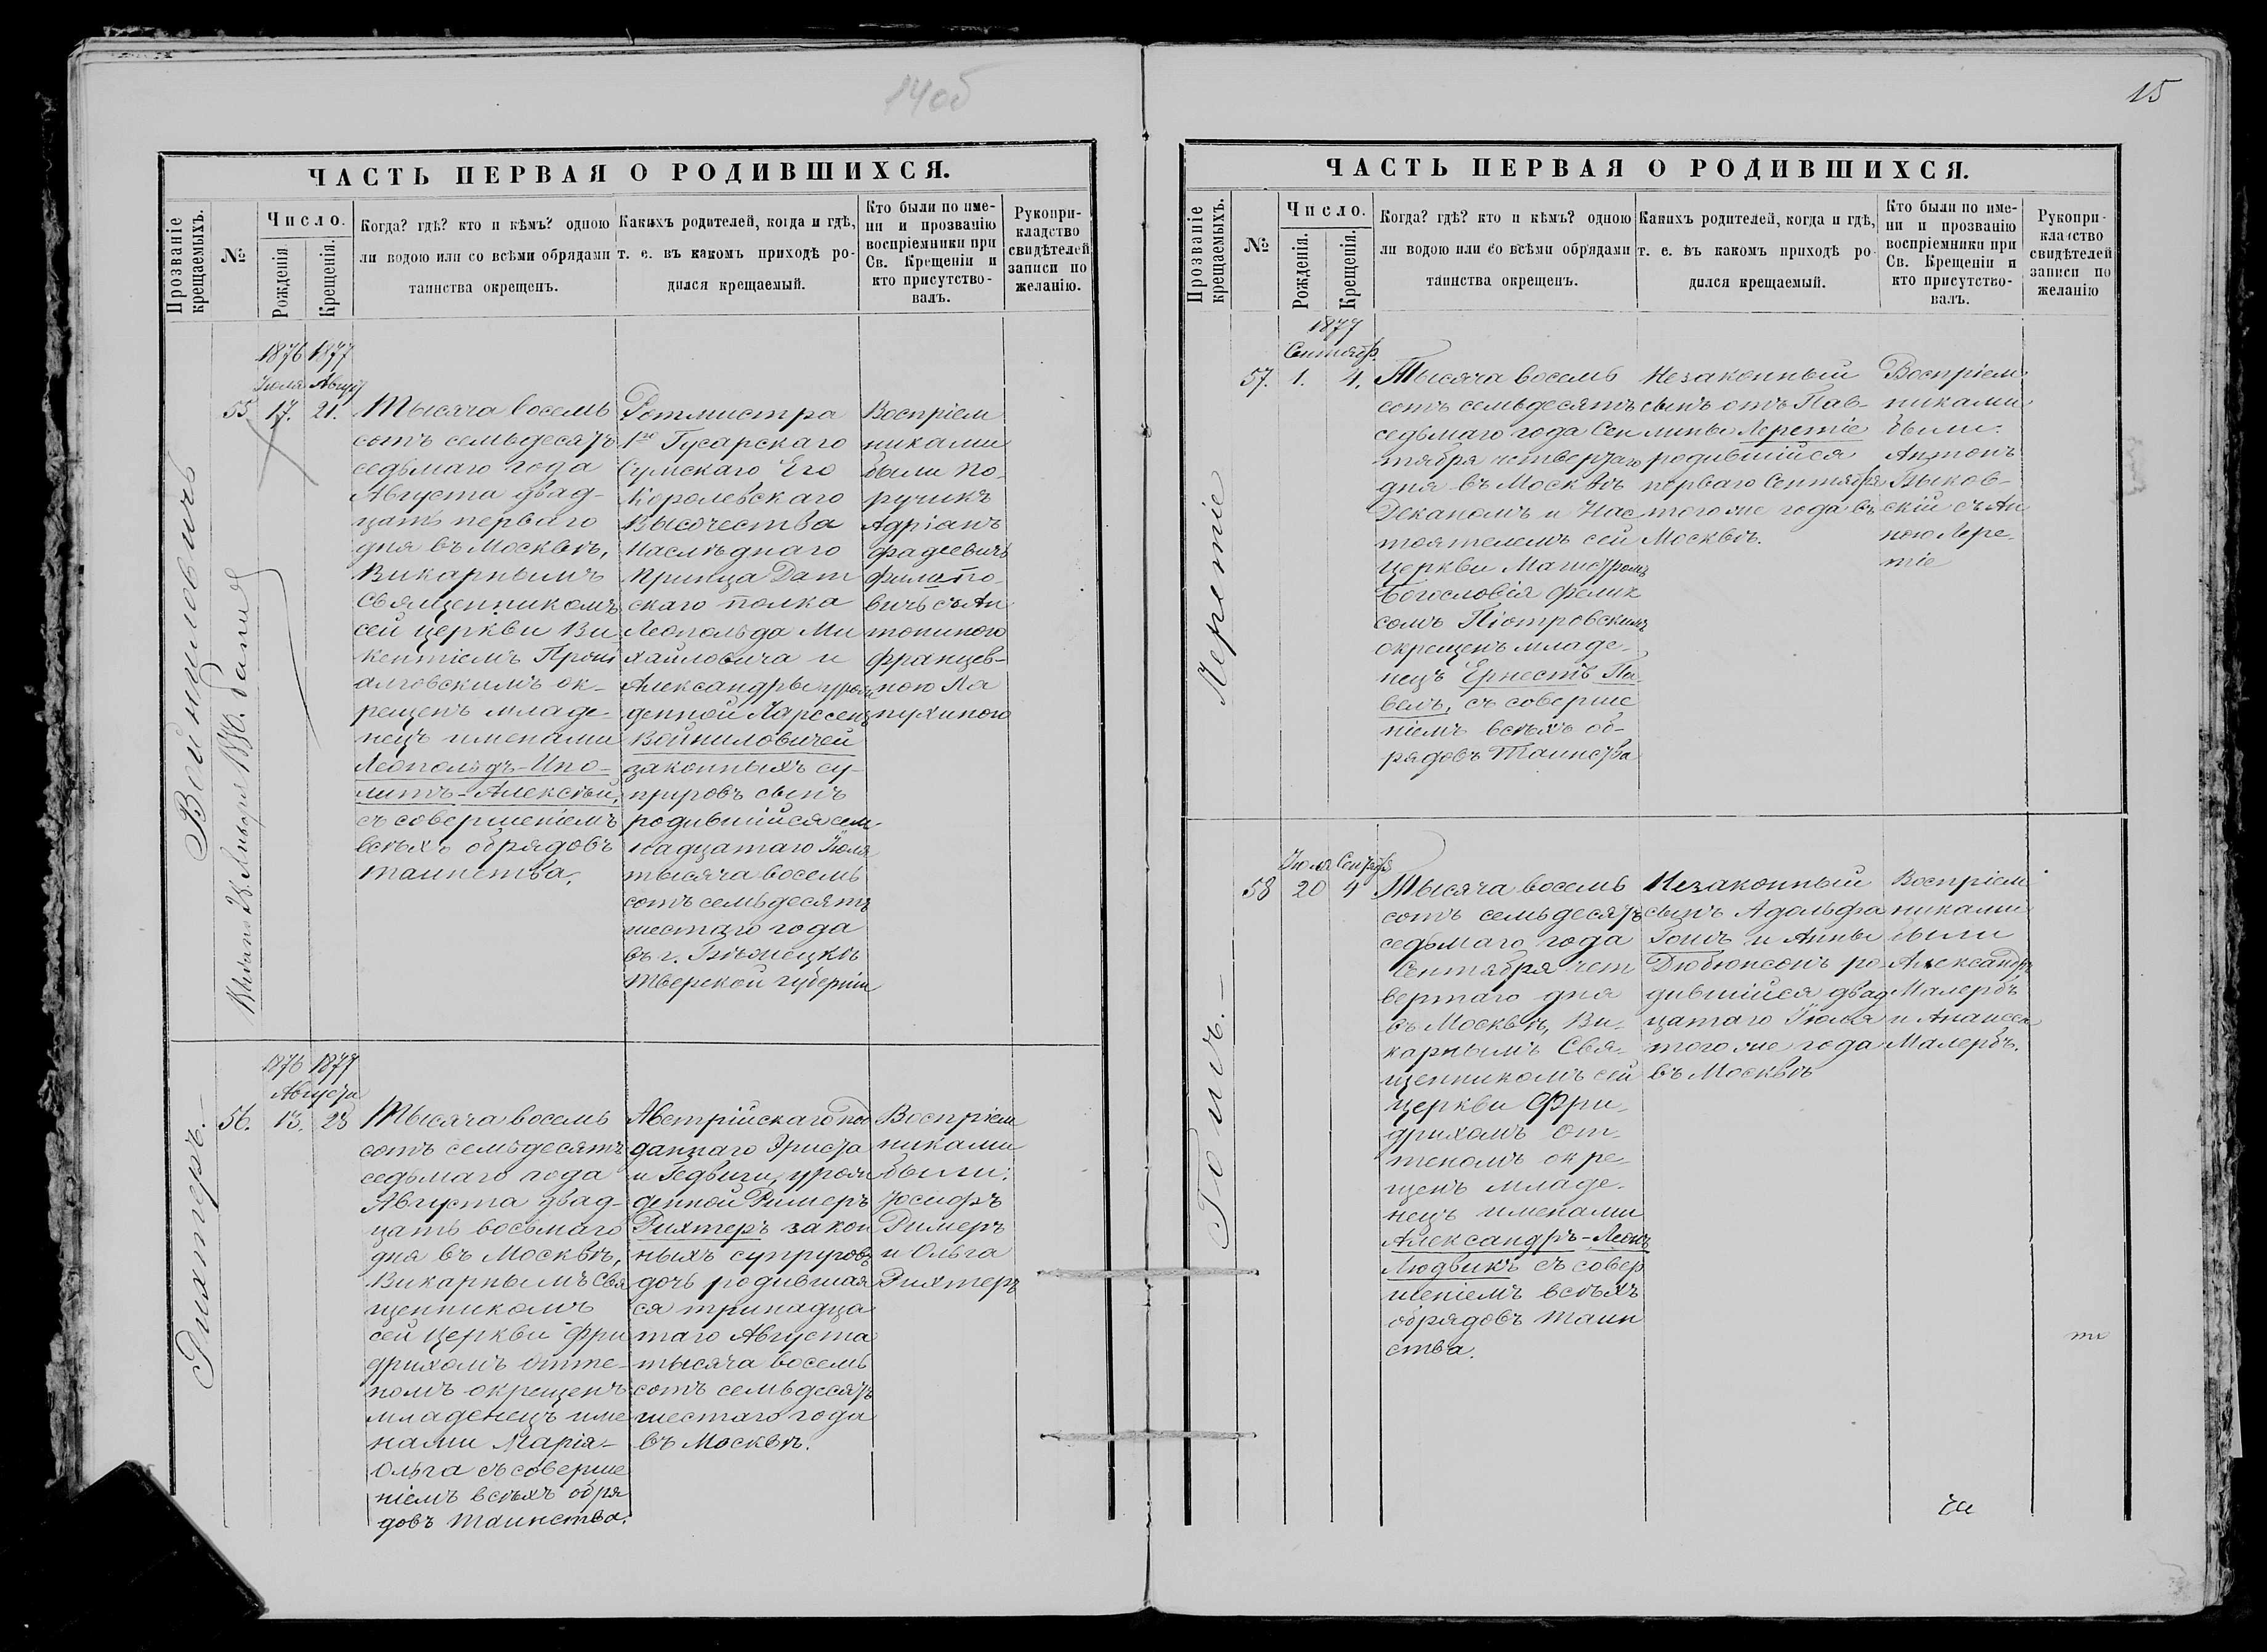 14об
ЧАСТЬ ПЕРВАЯ О РОДИВШИХСЯ.
Прозваніе крещаемыхъ.
№
Число.
Рожденія
Крещенія.
Когда? гдѣ? кто и кѣмъ? одною
ли водою или со всѣми обрядами
таинства окрещенъ.
Какихъ родителей, когда и гдѣ,
т. е. въ какомъ приходѣ ро-
дился крещаемый.
Кто были по име-
ни и прозванію
воспріемники при
Св. Крещеніи и
кто присутство-
валъ.
Рукопри-
кладство
свидѣтелей
записи по
желанію.
Войниловичъ
1876 1877
Іюля Август
55 17. 21.
Тысяча восемь
сотъ семьдесятъ
седьмаго года
Августа двад-
цать перваго
дня въ Москвѣ,
Викарнымъ
Священникомъ
сей церкви Ви
кентіемъ
ок-
рещенъ младе-
нецъ именами
Леопольдъ-Ипо-
литъ-Алексѣй,
съ совершеніемъ
всѣхъ обрядовъ
таинства.
Ротмистра
1го Гусарскаго
Сумскаго Его
Королевскаго
Высочества
Наслѣднаго
Принца Дат
скаго полка
Леопольда Ми
хайловича и
Александры урож
денной Ларссенъ
Войниловичей
законныхъ су-
пруговъ сынъ
родившійся сем-
надцатаго Іюля
тысяча восемь
сотъ семьдесятъ
шестаго года
въ г. Бѣжецкѣ
Тверской губерніи
Воспріем
никами
были По-
ручикъ
Адріанъ
Фадеевичъ
Филипо-
вичъ съ Ан
тониною
Францев-
ною Ла
пухиною
Рихтеръ.-
1876 1877
Августа
56. 13. 28
Тысяча восемь
сотъ семьдесятъ
седьмаго года
Августа двад-
цать восьмаго
дня въ Москвѣ,
Викарнымъ Свя
щенникомъ
сей Церкви Фри
дрихомъ Отте-
номъ окрещенъ
младенецъ име
нами Марія-
Ольга съ соверше
ніемъ всѣхъ обря
довъ таинства.
Австрійскаго под
даннаго Эрнста
и Гедвиги, урож
денной Римеръ
Рихтеръ закон
ныхъ супруговъ
дочь родившая
ся тринадца
таго Августа
тысяча восемь
сотъ семьдесятъ
шестаго года
въ Москвѣ.
Воспріем
никами
были:
Іосифъ
Римеръ
и Ольга
Рихтеръ
15
ЧАСТЬ ПЕРВАЯ О РОДИВШИХСЯ.
Прозваніе крещаемыхъ.
№
Число.
Рожденія.
Крещенія.
Когда? гдѣ? кто и кѣмъ? одною
ли водою или со всѣми обрядами
таинства окрещенъ.
Какихъ родителей, когда и гдѣ,
т. е. въ какомъ приходѣ ро-
дился крещаемый.
Кто были по име-
ни и прозванію
воспріемники при
Св. Крещеніи и
кто присутство-
валъ.
Рукопри-
кладство
свидѣтелей
записи по
желанію
Леретіе
1877
Сентябр.
57. 1. 4.
Тысяча восемь
сотъ семьдесятъ
седьмаго года Сен
тября четвертаго
дня въ Москвѣ
Деканомъ и Нас
тоятелемъ сей
Церкви Магистромъ
Богословія Фелик
сомъ Піотровскимъ
окрещенъ младе-
нецъ Ернестъ Па
велъ, съ соверше
ніемъ всѣхъ об-
рядовъ Таинства
Незаконный
сынъ отъ Пав-
лины Леретіе
родившійся
перваго Сентября
того же года въ
Москвѣ.
Воспріем
никами
были:
Антонъ
Быков-
скій съ Ан
ною Лере-
тіе
Гошъ.-
Іюля Сентября
58 20 4
Тысяча восемь
сотъ семьдесятъ
седьмаго года
Сентября чет
вертаго дня
въ Москвѣ, Ви-
карнымъ Свя-
щенникомъ сей
Церкви Фри-
дрихомъ От-
теномъ окре-
щенъ младе-
нецъ именами
Александръ-Леонъ
Людвикъ съ совер
шеніемъ всѣхъ
обрядовъ таин
ства.
Незаконный
сынъ Адольфа
Гошъ и Анны
Дюбюисонъ ро-
дившійся двад
цатаго Іюля
того же года
въ Москвѣ
Воспріем
никами
были
Александръ
Малербъ
и
Малербъ.